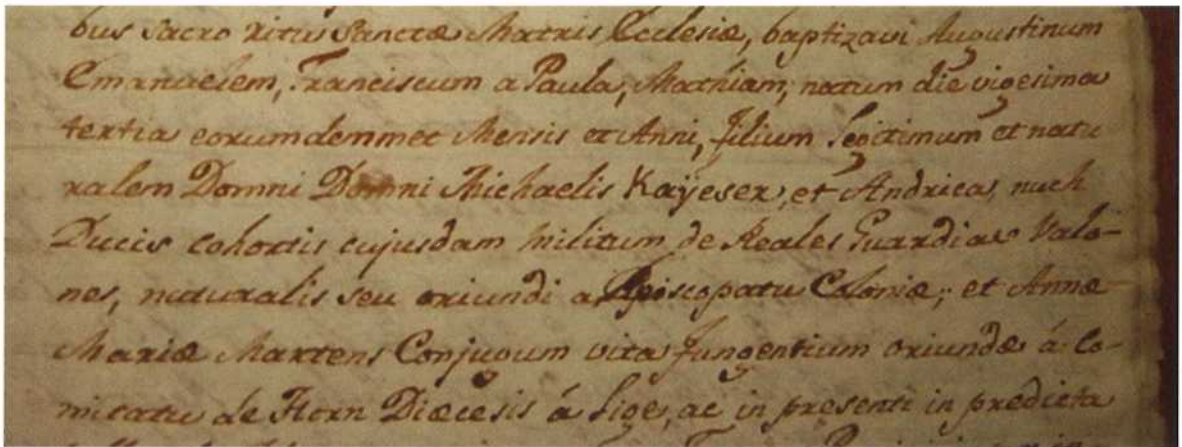 bus sacro ritu Sanctæ Matris Ecclesiæ, baptizavi Augustinum
Emanuelem, Franciscum a Paula, Mathiam, natum die vigesima
tertia eorumdemmet Mensis et Anni, filium legitimum et natu
ralem Domni Domni Michaelis Kaÿeser, et Andrica,
Ducis cohortis cujusdam militum de Reales Guardias Valo-
nes, naturalis seu oriundi a Episcopatu Coloniæ; et Annæ
Mariæ Martens Conjugum vita fungentium oriundæ á Co-
mitatu de Horn Diæcesis á Lige, ac in presenti in predicta